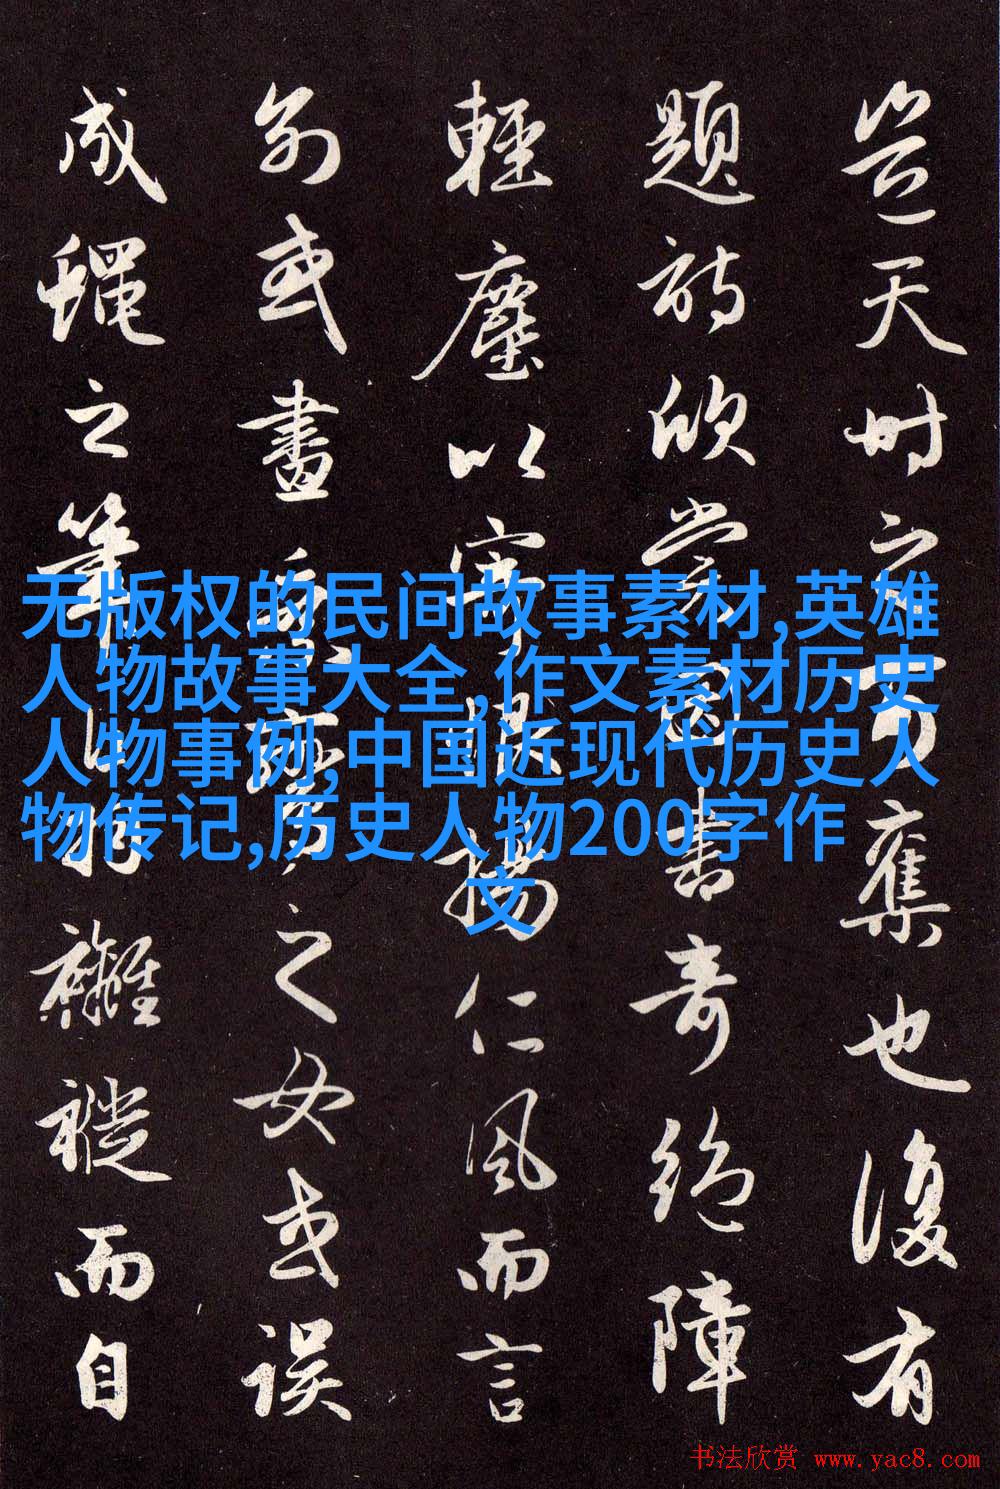 豈天時之可奪也復有
題詩欣賞書奇絶障
輕塵以寧揚仁風而言
別或畫乘鸞之女或誤
成蠅之筆而自
无版权的民间故事素材,英雄
人物故事大全,作文素材历史
人物事例,中国近现代历史人
物传记,历史人物200字作
文
书法欣赏 www.yac8.com